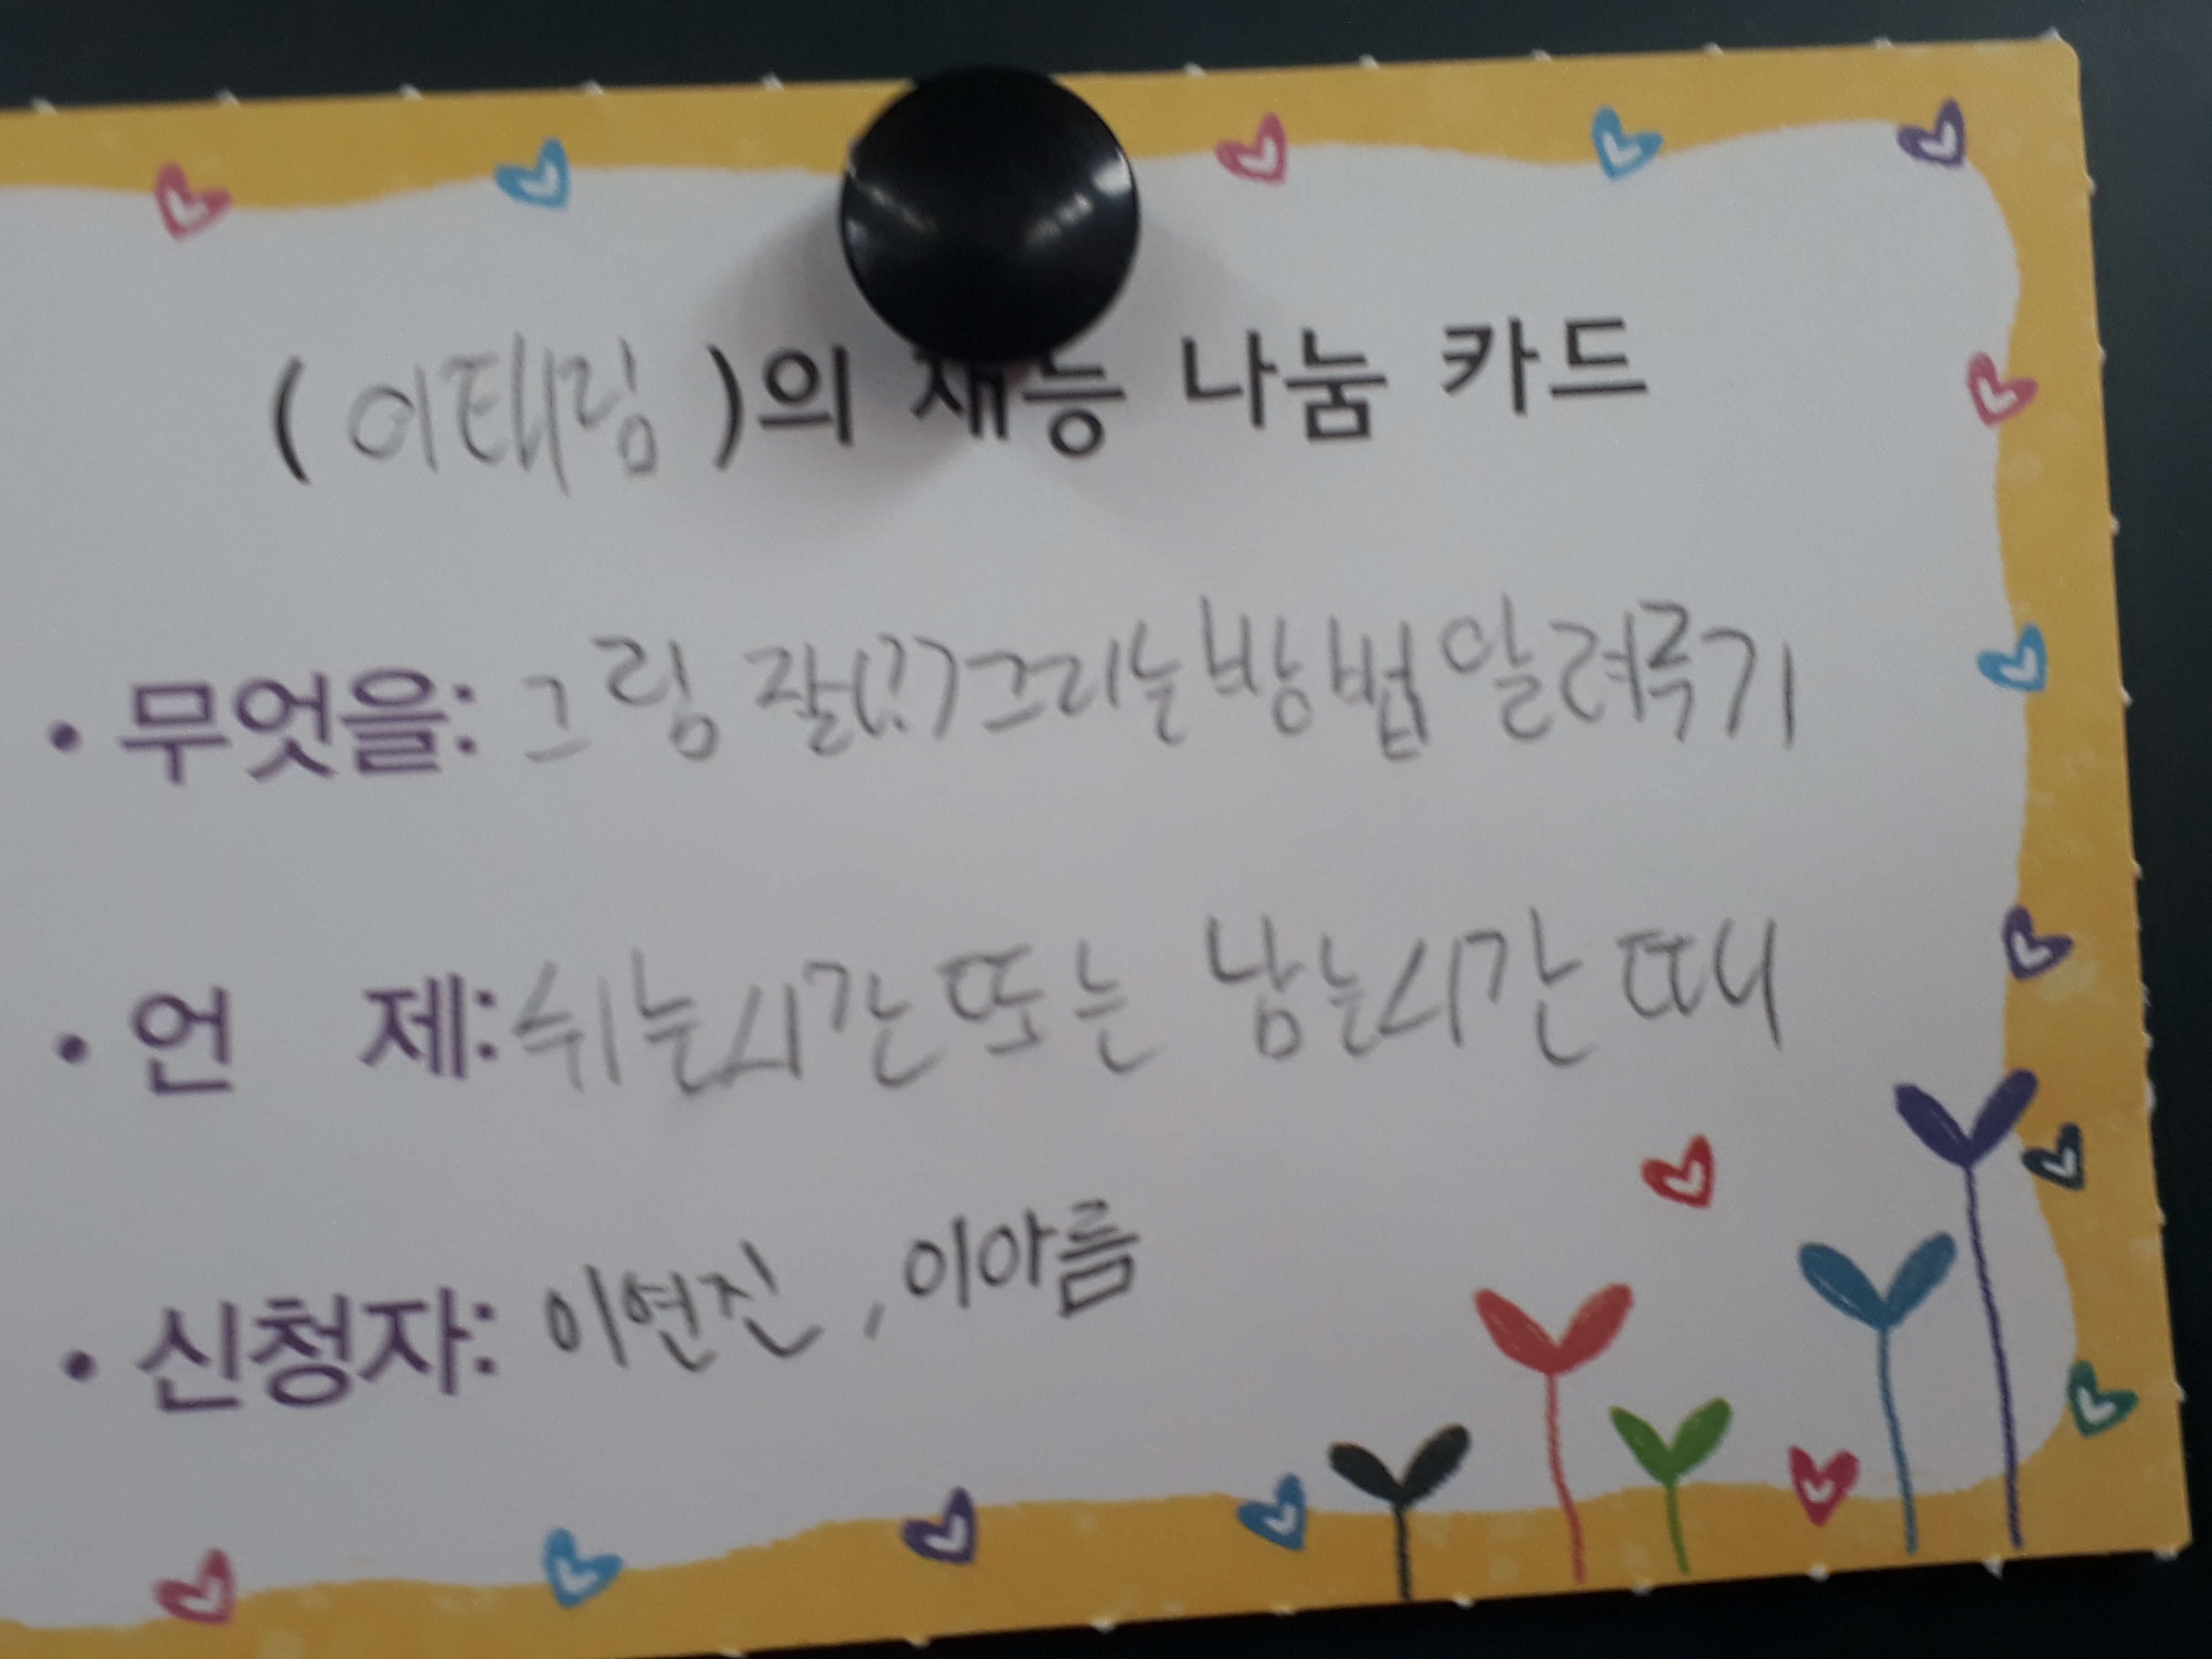 (이태림)의 재능 나눔 카드
• 무엇을: 그림 잘(??그리는방법알려주기
• 언 제: 쉬는시간또는 남는시간때
• 신청자: 이연진, 이아름